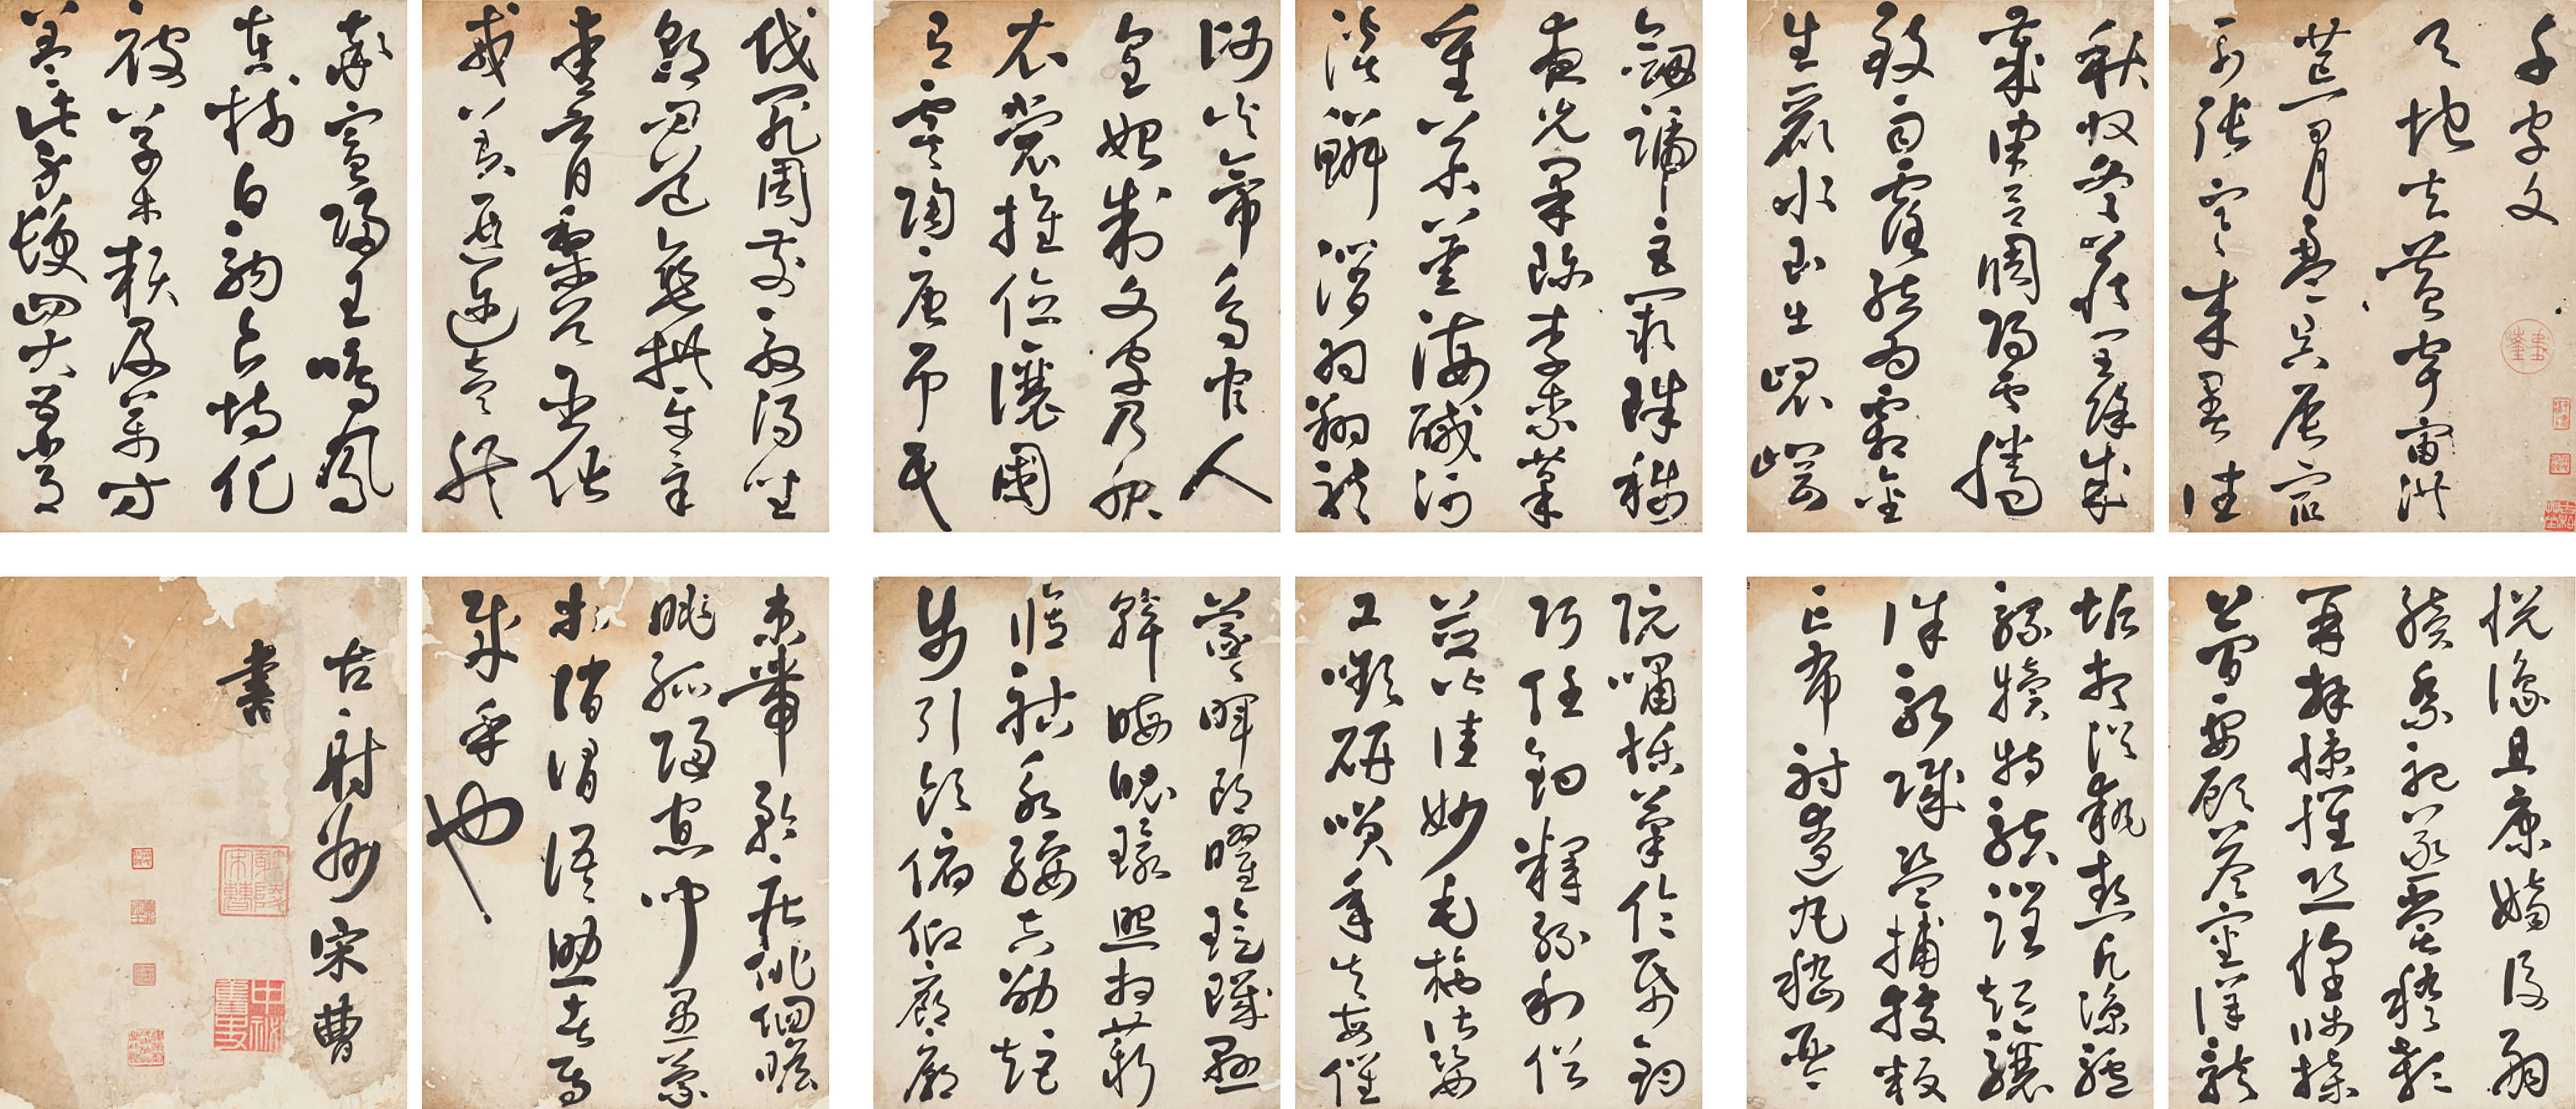 千字文
天地玄黃宇宙洪
荒日月盈昃辰宿
列張寒來暑往
秋收冬藏閏餘成
歲律呂調陽雲騰
致雨露結為霜金
生麗水玉出崑岡
劍號巨闕珠稱
夜光果珍李柰菜
重芥薑海鹹河
淡鱗潛羽翔龍
師火帝鳥官人
皇始制文字乃服
衣裳推位讓國
有虞陶唐弔民
伐罪周發殷湯坐
朝問道垂拱平章
愛育黎首臣伏
戎羌遐邇壹體
率賓歸王鳴鳳
在樹白駒食場化
被草木賴及萬方
蓋此身髮四大五常
悅豫且康嫡後嗣
續祭祀蒸嘗稽顙
再拜悚懼恐惶牋牒
簡要顧答審詳骸
垢想浴執熱願涼驢
騾犢特駭躍超驤
誅斬賊盜捕獲叛
亡布射遼丸嵇琴
阮嘯恬筆倫紙鈞
巧任釣釋紛利俗
並皆佳妙毛施淑姿
工顰妍笑年矢每催
羲暉朗曜璇璣懸
斡晦魄環照指薪
修祜永綏吉劭矩
步引領俯仰廊廟
束帶矜莊徘徊瞻
眺孤陋寡聞愚蒙
等誚謂語助者焉
哉乎也
古射宋曹
書